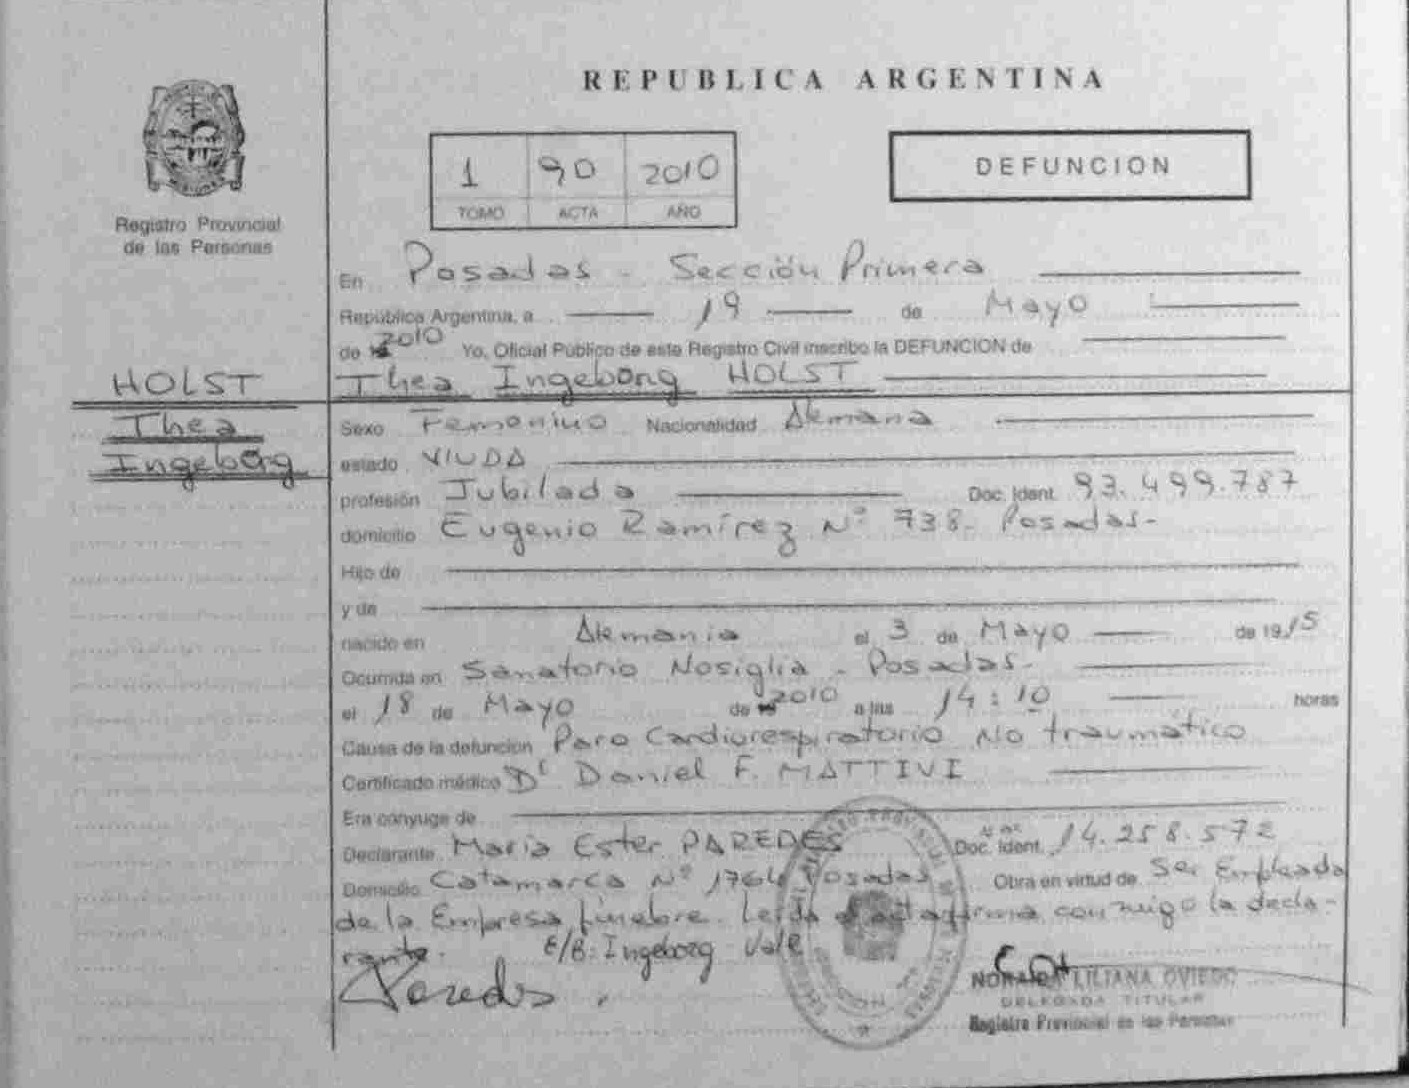 REPUBLICA ARGENTINA
1 90 2010
TOMO ACTA AÑO
DEFUNCION
Registro Provincial
de las Personas
En Posadas - Sección Primera
República Argentina, a 19 de Mayo
de 2010 Yo, Oficial Público de este Registro Civil inscribo la DEFUNCION de
HOLST
Thea Ingeborg HOLST
Thea
Ingeborg
Sexo Femenino Nacionalidad Alemana
estado VIUDA
profesión Jubilada Doc. Ident. 93.499.787
domicilio Eugenio Ramírez N° 738. Posadas-
Hijo de
y de
nacido en Alemania el 3 de Mayo de 1915
Ocurrida en Sanatorio Nosiglia - Posadas-
el 18 de Mayo de 2010 a las 14:10 horas
Causa de la defunción Paro Cardiorespiratorio No traumático
Certificado médico Dr Daniel F. MATTIVI
Era cónyuge de
Declarante María Ester PAREDES Doc. Ident. 14.258.572
Domicilio Catamarca N° 1764 Posadas Obra en virtud de Ser Empleada
de la Empresa fúnebre. Leída el acta firma conmigo la decla-
rante. E/B: Ingeborg Vale
Paredes
NORMA LILIANA OVIEDO
DELEGADA TITULAR
Registro Provincial de las Personas